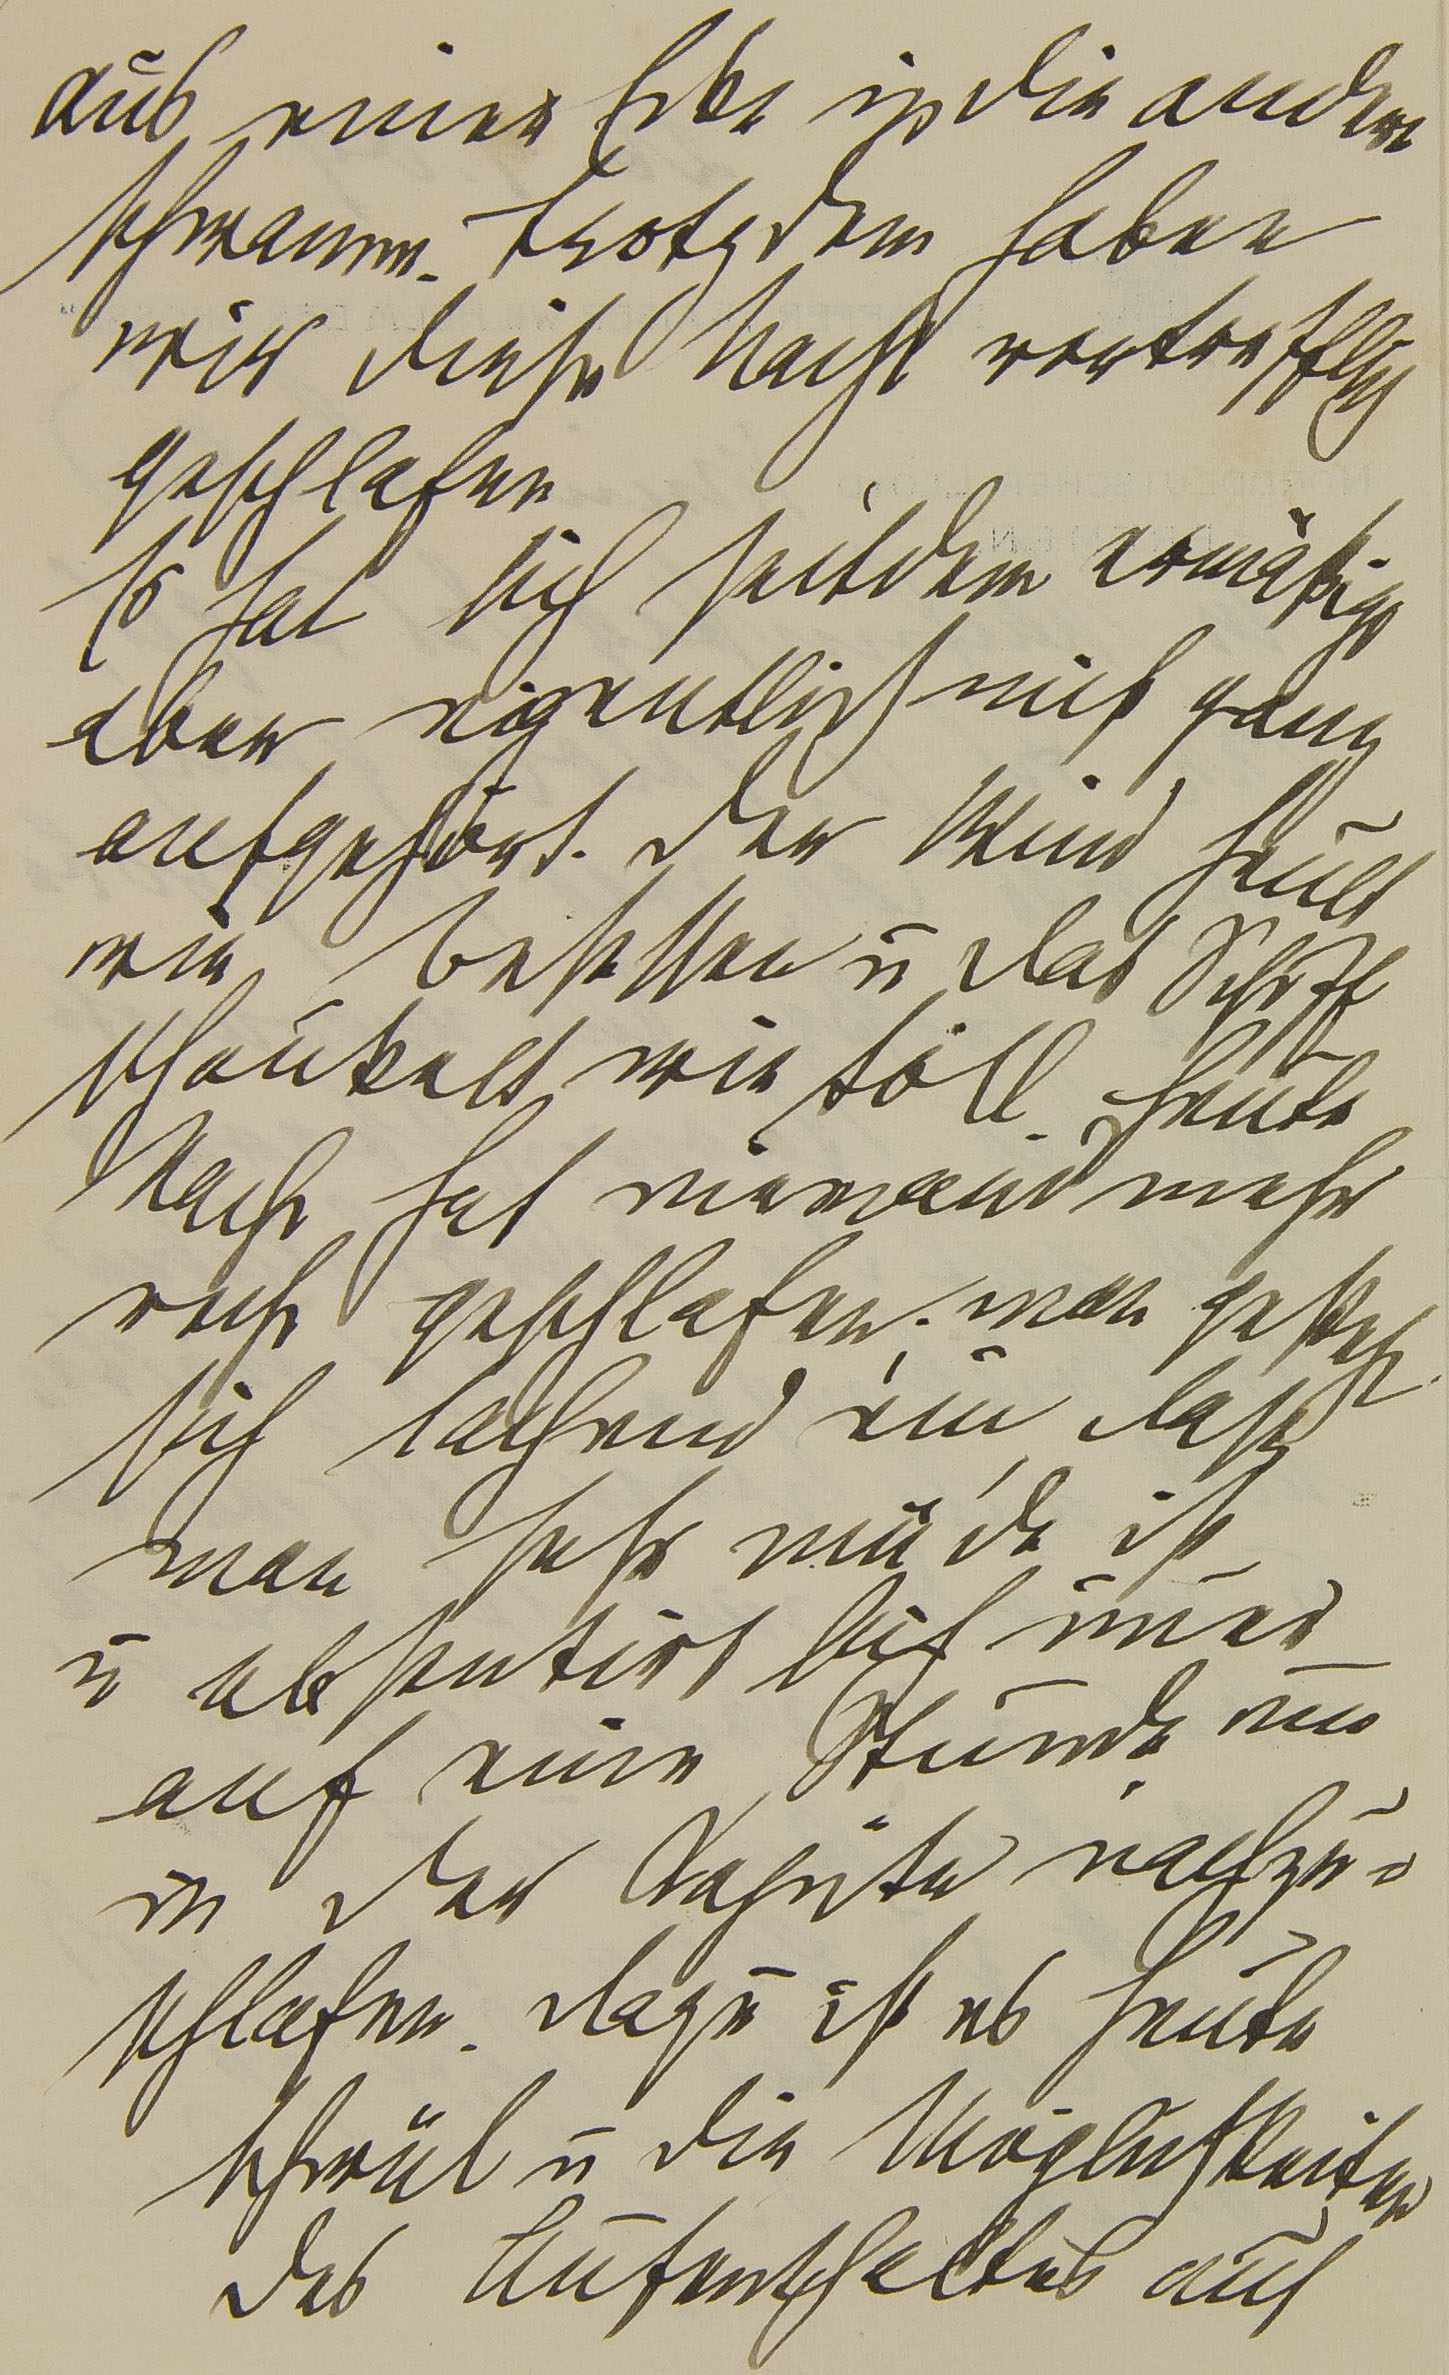 aus einer Ecke in die andere
schwamm. Trotzdem haben
wir diese Nacht vortrefflich
geschlafen
Es hat sich seitdem ermäßigt
aber eigentlich nicht ganz
aufgehört. Der Wind heult
wie besessen u das Schiff
schaukelt wie toll. Heute
Nacht hat niemand mehr
recht geschlafen. man gesteht
sich lachend ein daß
man sehr müde ist
u absentirt sich immer
auf eine Stunde um
in der Kajüte nachzu=
schlafen. Dazu ist es heute
schwül u die Möglichkeiten
des Aufenthaltes auf